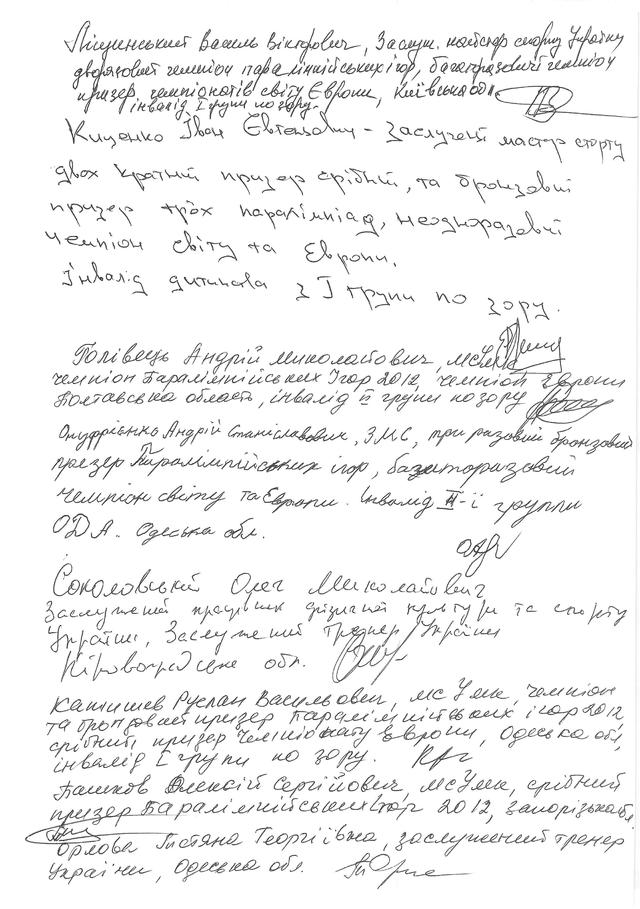 Ліщинський Василь Вікторович, Заслуж. майстер спорту України
дворазовий чемпіон паралімпійських ігор, багаторазовий чемпіон
призер чемпіонатів світу Європи, Київська обл.
інвалід I групи по зору.
Іван Євгенович - заслужений мастер спорту
двох кратний призер срібний, та бронзовий
призер трьох паралімпіад, неодноразовий
чемпіон світу та Європи.
Інвалід дитинства з I групи по зору.
Голівець Андрій Миколайович, МСУмк
чемпіон Паралімпійських Ігор 2012, чемпіон Європи
Полтавська область, інвалід II групи по зору
Онуфрієнко Андрій Станіславович, ЗМС, три разовий бронзовий
призер Паралімпійських ігор, багаторазовий
чемпіон світу та Європи. Інвалід II-ї группи
ОДА. Одеська обл.
Соколовський Олег Миколайович
Заслужений працівник фізичної культури та спорту
України, Заслужений тренер України
Кіровоградська обл.
Катишев Руслан Васильович, мс Умк, чемпіон
та бронзовий призер Паралімпійських ігор 2012,
срібний призер Чемпіонату Європи, Одеська обл,
інвалід I групи по зору.
Пашков Олексій Сергійович, МсУмк, срібний
призер Паралімпійських Ігор 2012, Запорізька обл
Орлова Тетяна Георгіївна, заслужений тренер
України, Одеська обл.